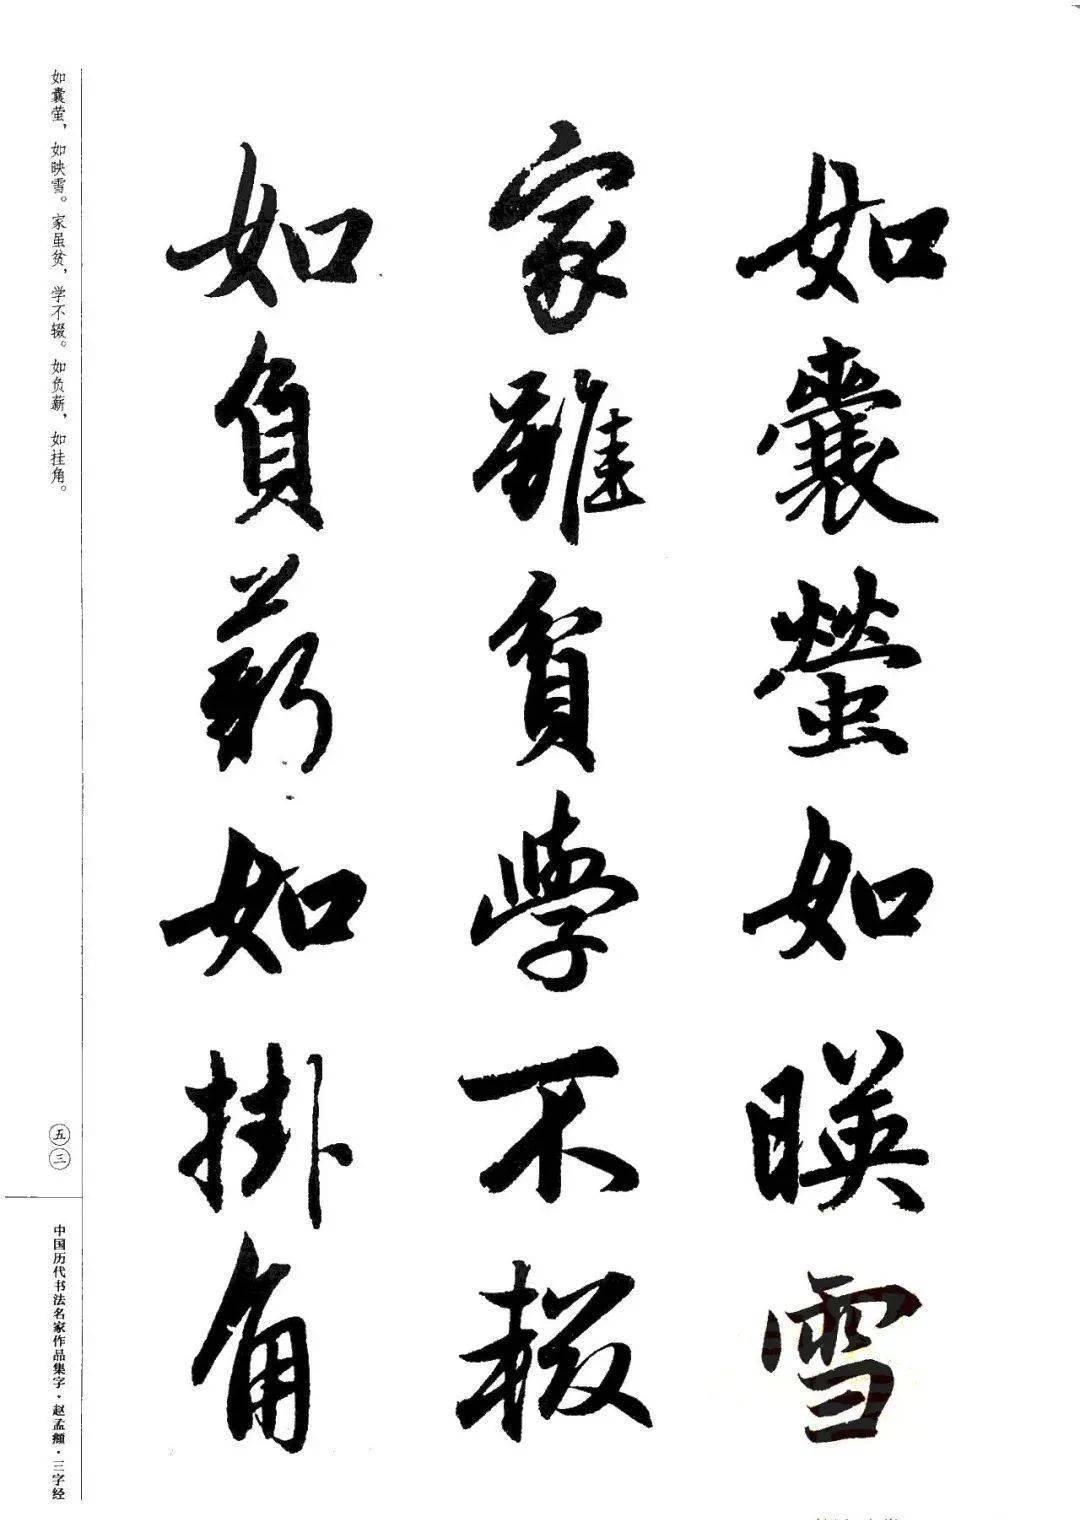 如囊螢如暎雪
家雖貧學不輟
如負薪如掛角
如囊萤，如映雪。家虽贫，学不辍。如负薪，如挂角。
五三
中国历代书法名家作品集字·赵孟頫·三字经